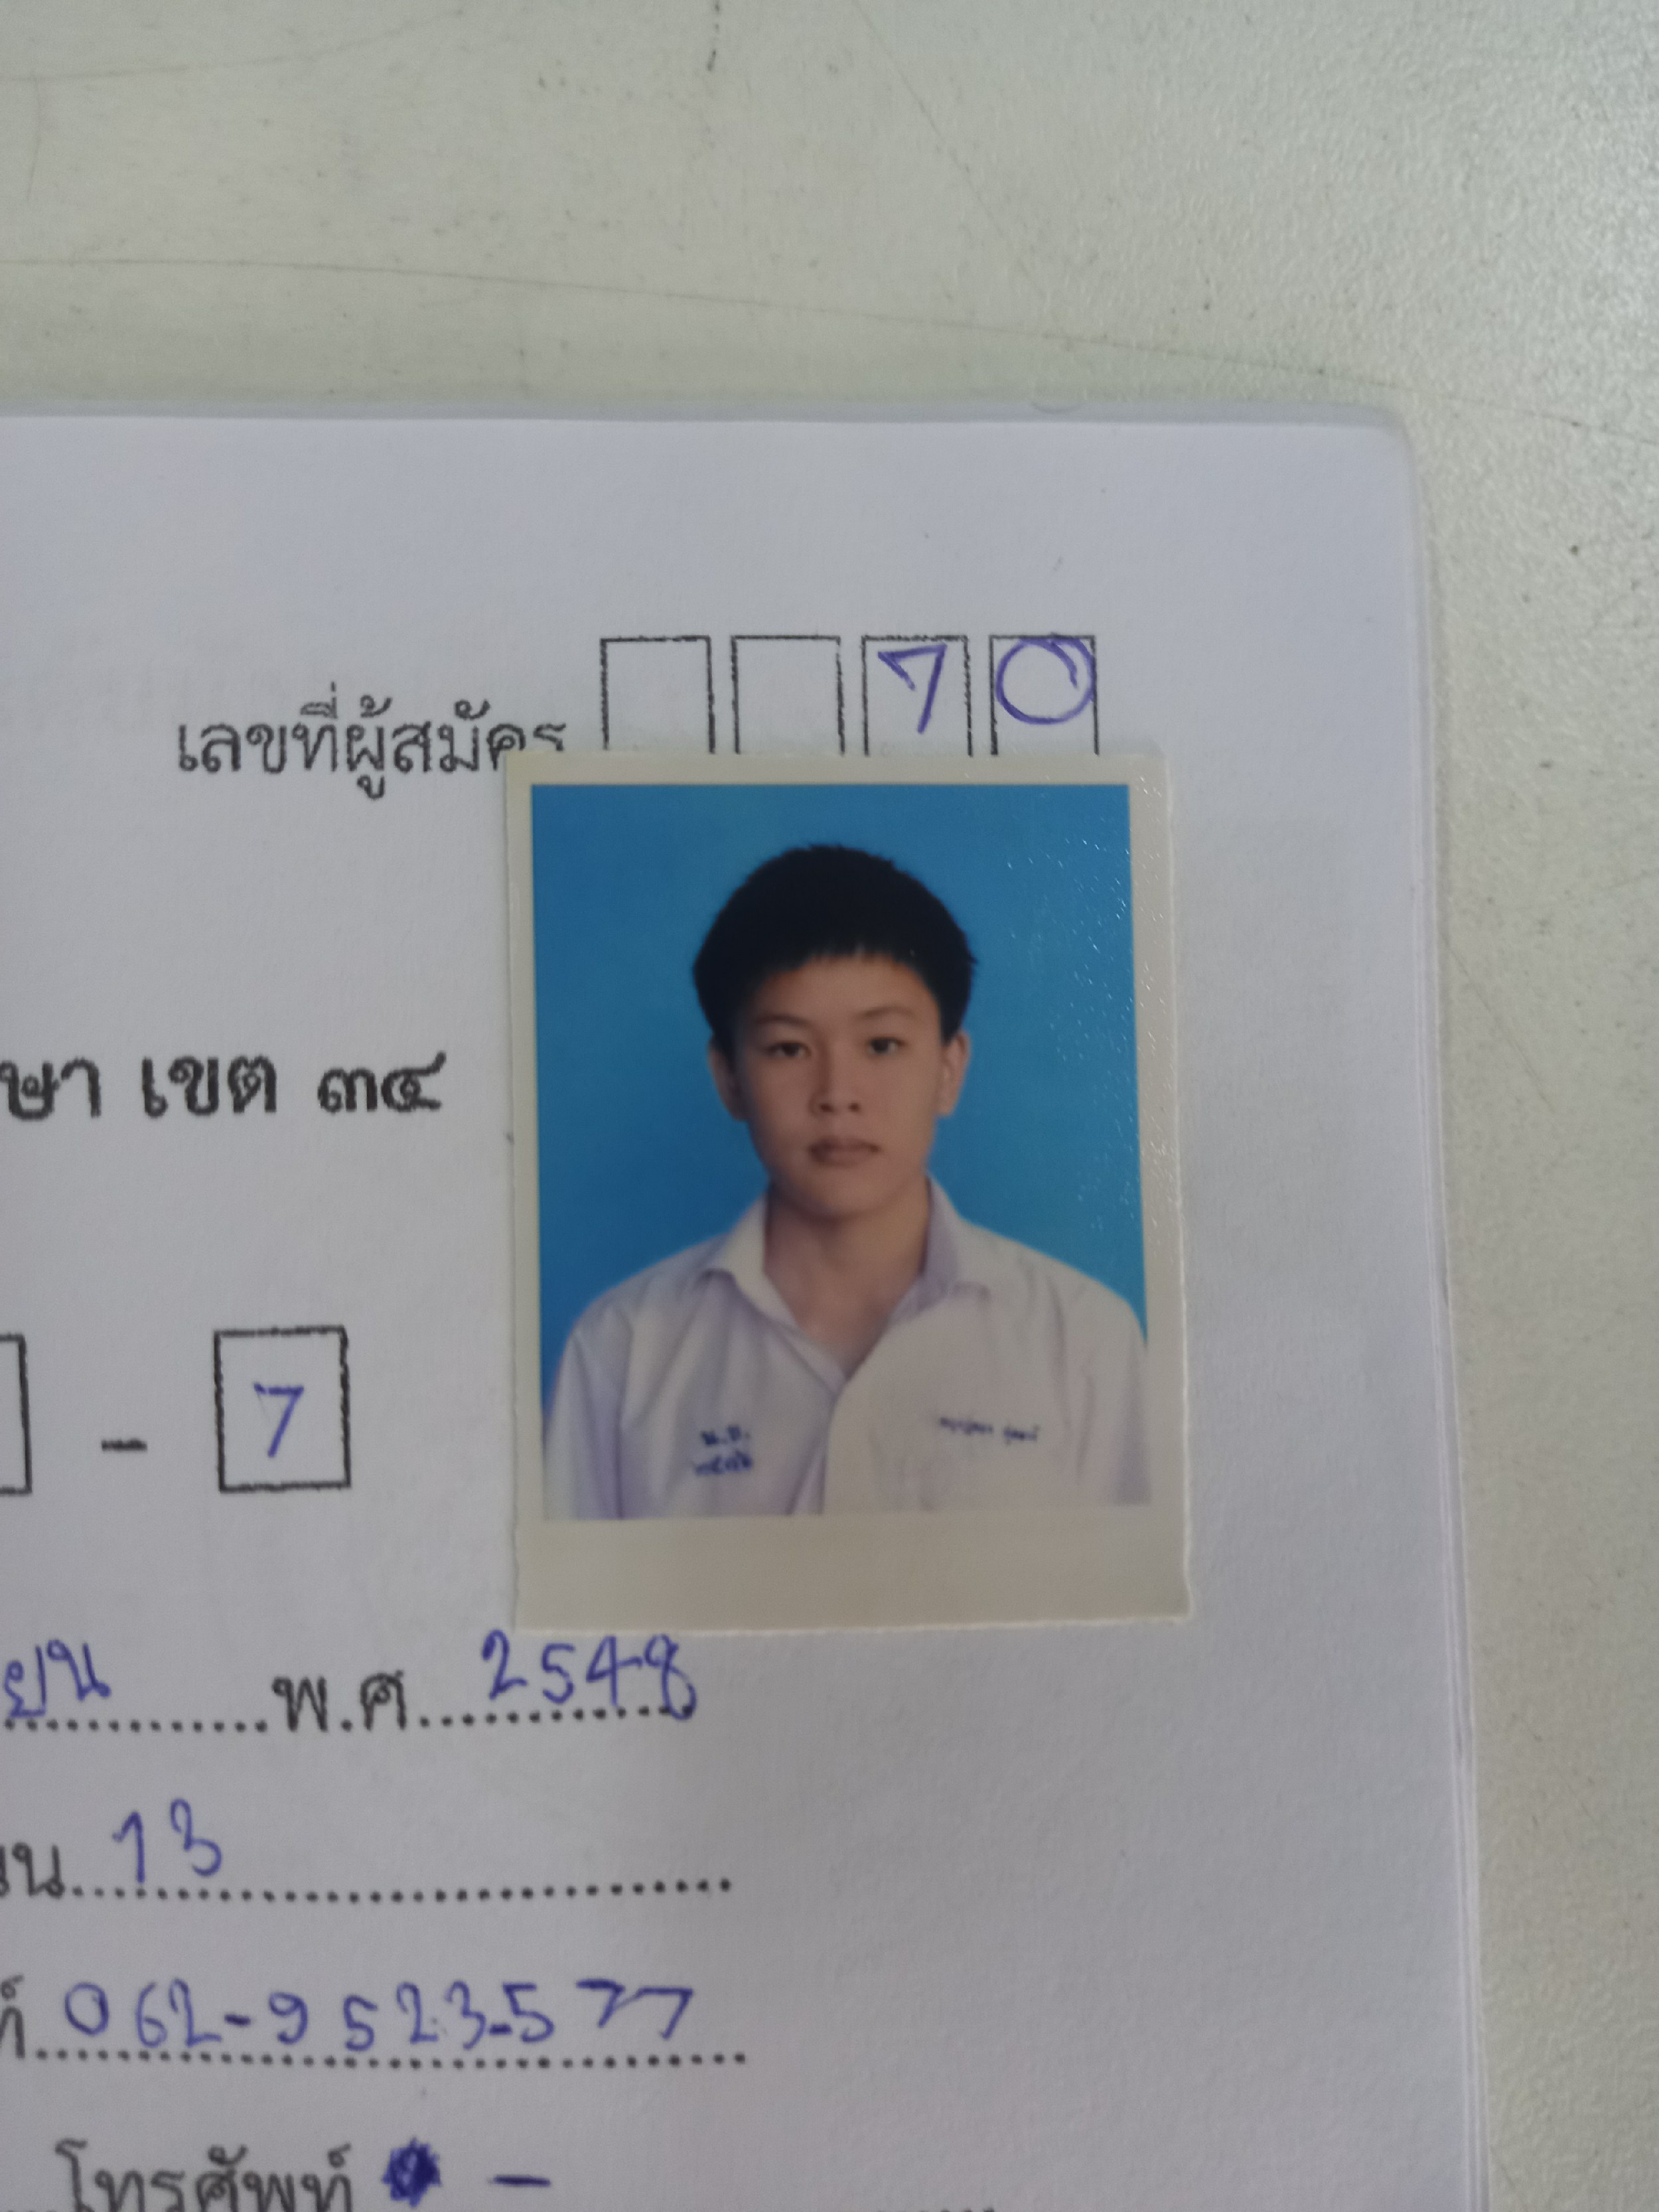 เลขที่ผู้สมัคร 7 0
ษา เขต ๓๔
- 7
น.ว.
ยน พ.ศ. 2548
13
062-9523-577
โทรศัพท์ -